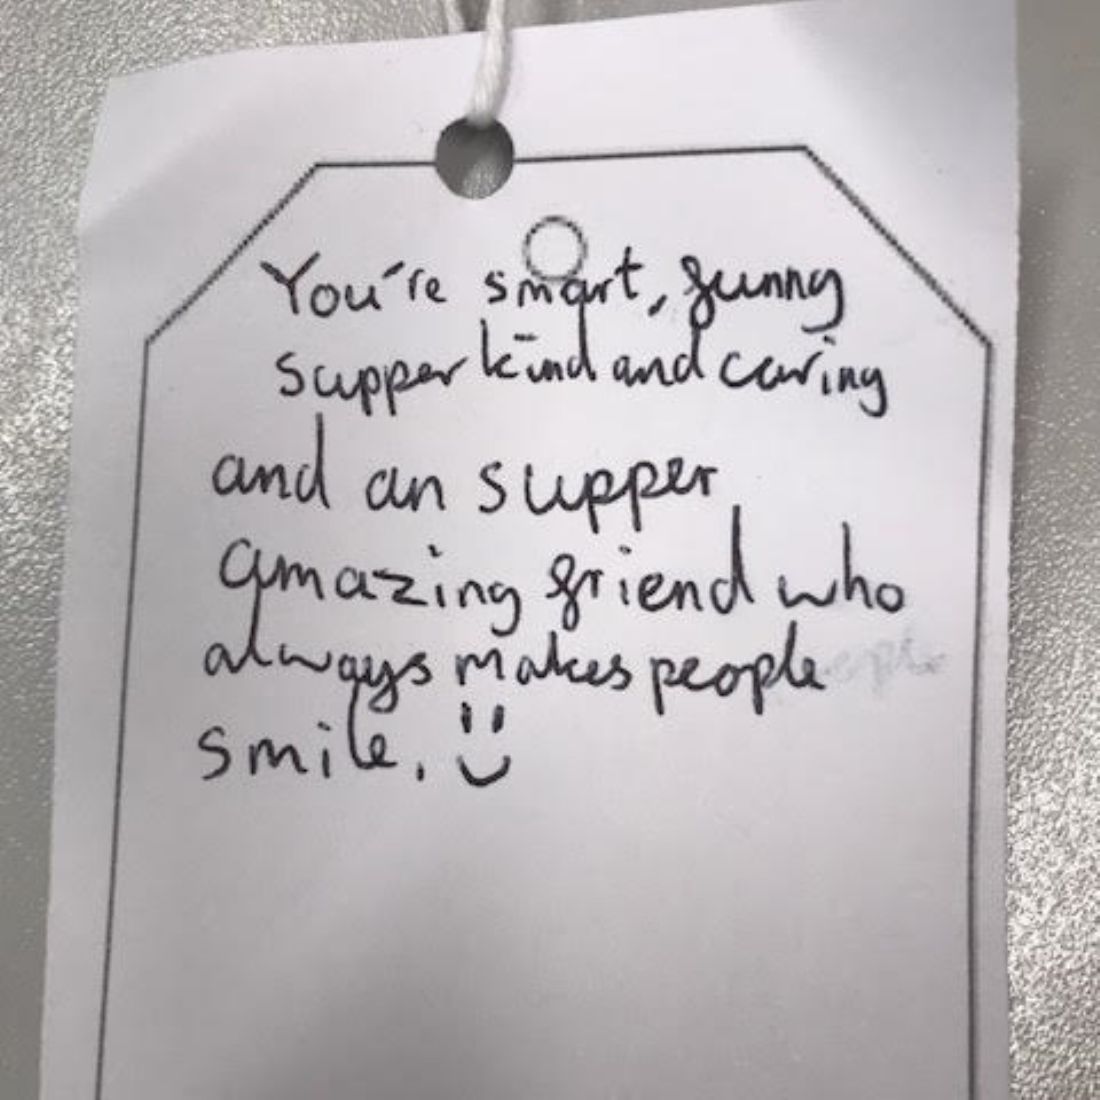 You're smart, funny
supper kind and caring
and an supper
amazing friend who
always makes people
smile. :)